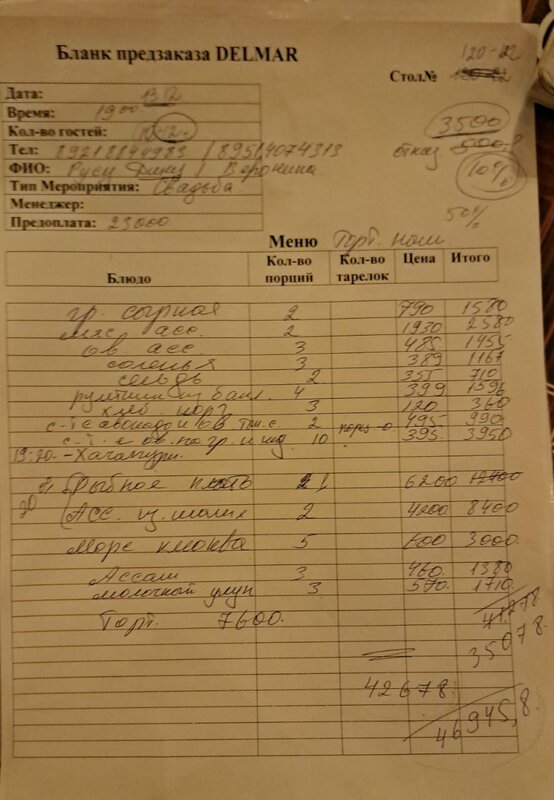 Бланк предзаказа DELMAR
120-122
Стол№
Дата: 13.12
Время: 19 00
3500
Кол-во гостей: 10-12ч
отказ 500-8
Тел: 89218844983 / 89514074313
10%
ФИО: Русу / Воронина
Тип Мероприятия: Свадьба
Менеджер:
50%
Предоплата: 23000
Меню Торт. наш
Блюдо Кол-во порций Кол-во тарелок Цена Итого
гр. сырная 2 790 1580
мяс. асс. 2 1930 2580
ов. асс. 3 485 1455
соленья 3 389 1167
сельдь 2 355 710
рулетики из бакл. 4 399 1596
хлеб корз 3 120 360
с-т с авокадо и ов 2 495 990
с-т с 10 395 3950
19:20 - Хачапури.
Рыбное плато 1 6200 12400
Асс. 2 4200 8400
Морс клюква 5 600 3000
Ассам 3 460 1380
молочный улун 3 570 1710
Торт. 7600.
41278
35078.
42678.
46945,8.